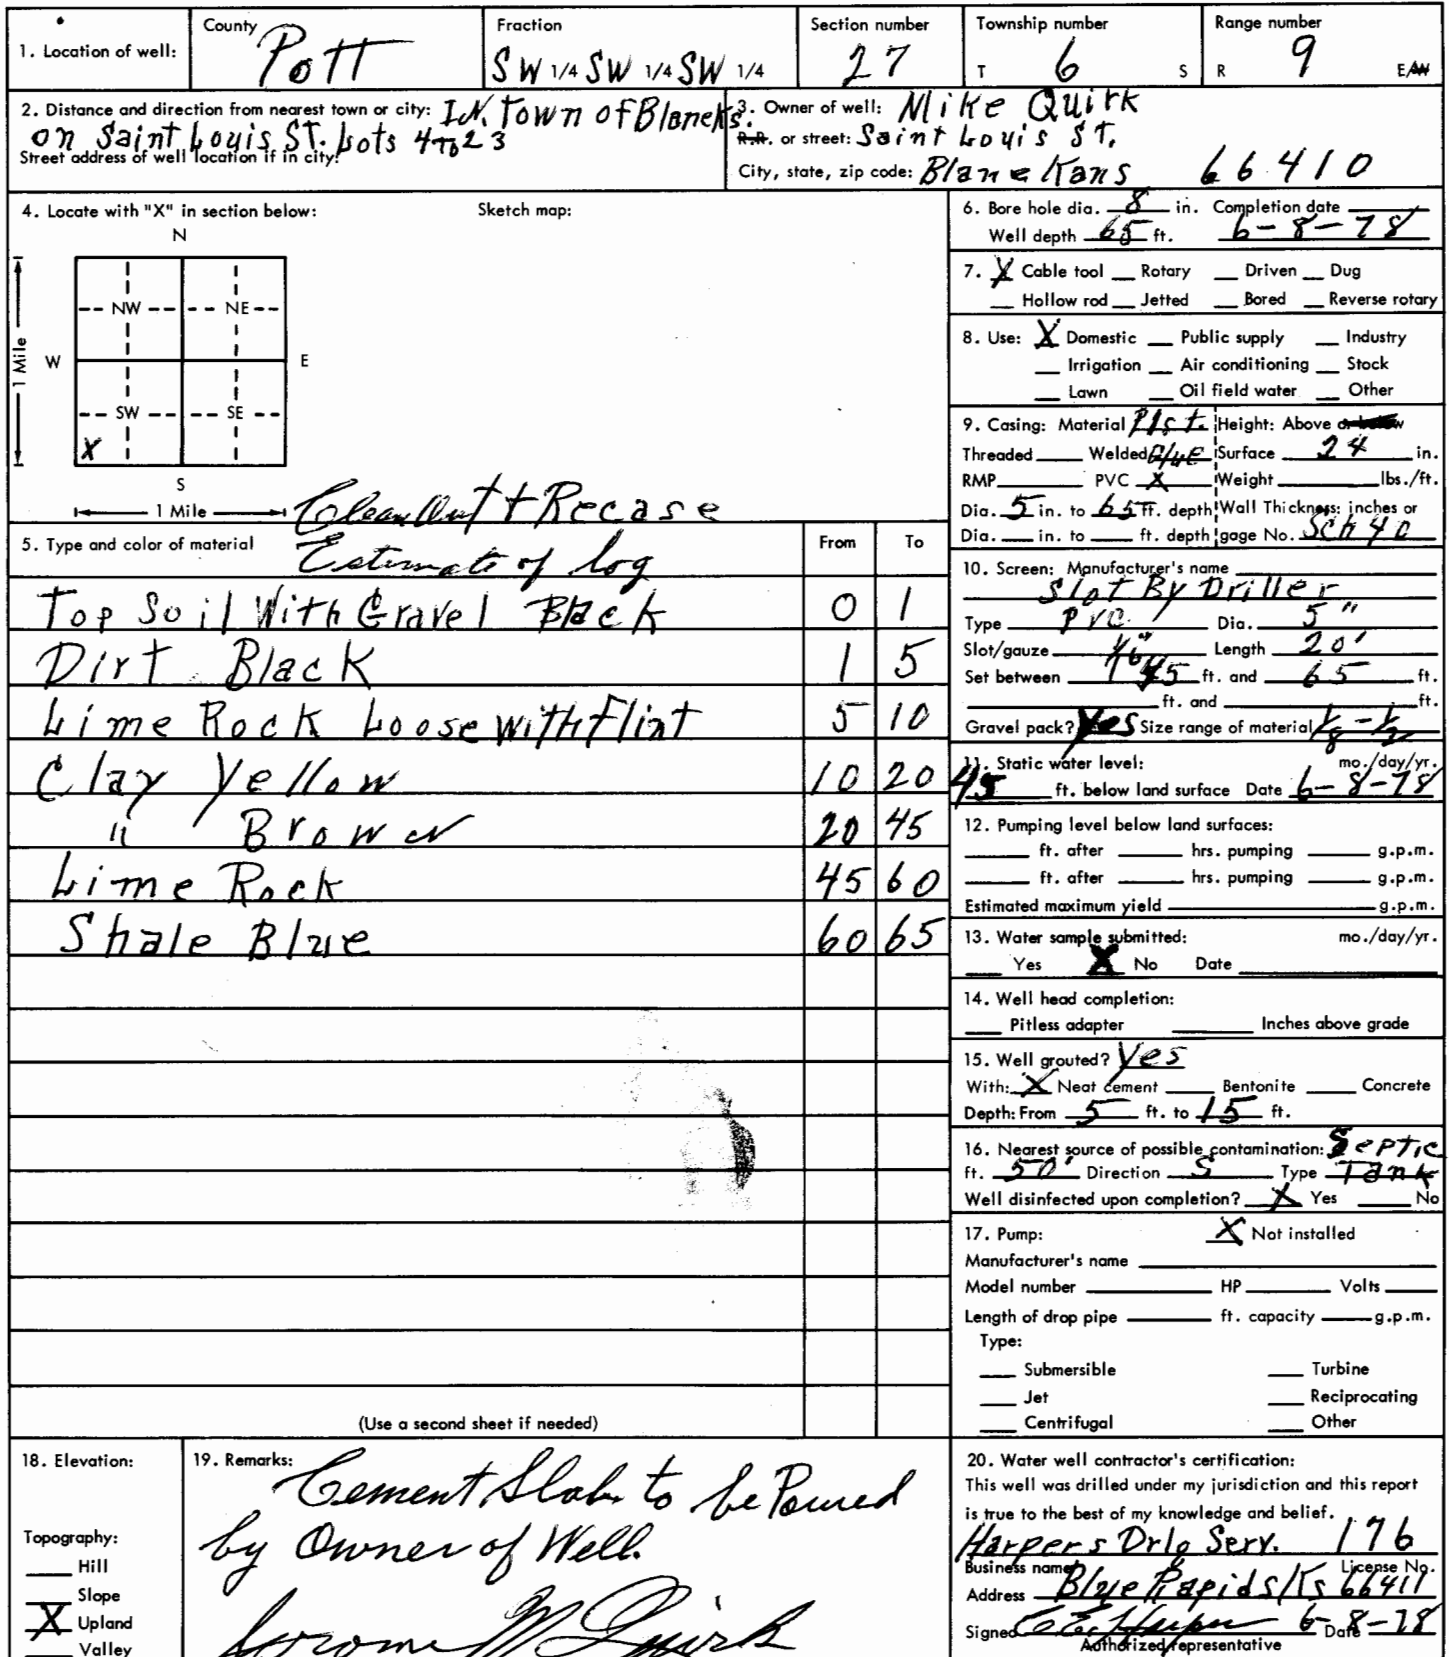 1. Location of well:
County
Pott
Fraction
SW 1/4 SW 1/4 SW 1/4
Section number
27
Township number
T 6 S
Range number
R 9 E/W
2. Distance and direction from nearest town or city: IN. Town of Blaneks.
on Saint Louis St. Lots 4 to 23
Street address of well location if in city:
3. Owner of well: Mike Quirk
R.R. or street: Saint Louis St.
City, state, zip code: Blane Kans 66410
4. Locate with "X" in section below:
Sketch map:
N
NW NE
W E
1 Mile
SW SE
X
S
1 Mile
Clean Out + Recase
5. Type and color of material
Estimate of log
From To
Top Soil With Gravel Black 0 1
Dirt Black 1 5
Lime Rock Loose With Flint 5 10
Clay Yellow 10 20
" Brown 20 45
Lime Rock 45 60
Shale Blue 60 65
(Use a second sheet if needed)
6. Bore hole dia. 8 in. Completion date
Well depth 65 ft. 6-8-78
7. X Cable tool __ Rotary __ Driven __ Dug
__ Hollow rod __ Jetted __ Bored __ Reverse rotary
8. Use: X Domestic __ Public supply __ Industry
__ Irrigation __ Air conditioning __ Stock
__ Lawn __ Oil field water __ Other
9. Casing: Material Plst. Height: Above or below
Threaded ____ Welded Glue Surface 24 in.
RMP ____ PVC X Weight ____ lbs./ft.
Dia. 5 in. to 65 ft. depth Wall Thickness: inches or
Dia. ___ in. to ___ ft. depth gage No. Sch 40
10. Screen: Manufacturer's name
Slot By Driller
Type PVC Dia. 5"
Slot/gauze 1/16" Length 20'
Set between 45 ft. and 65 ft.
____ ft. and ____ ft.
Gravel pack? Yes Size range of material 1/8 - 1/2
11. Static water level: mo./day/yr.
45 ft. below land surface Date 6-8-78
12. Pumping level below land surfaces:
____ ft. after ____ hrs. pumping ____ g.p.m.
____ ft. after ____ hrs. pumping ____ g.p.m.
Estimated maximum yield ____ g.p.m.
13. Water sample submitted: mo./day/yr.
__ Yes X No Date ____
14. Well head completion:
__ Pitless adapter ____ Inches above grade
15. Well grouted? Yes
With: X Neat cement __ Bentonite __ Concrete
Depth: From 5 ft. to 15 ft.
16. Nearest source of possible contamination: Septic
ft. 50' Direction S Type Tank
Well disinfected upon completion? X Yes __ No
17. Pump: X Not installed
Manufacturer's name ____
Model number ____ HP ____ Volts ____
Length of drop pipe ____ ft. capacity ____ g.p.m.
Type:
__ Submersible __ Turbine
__ Jet __ Reciprocating
__ Centrifugal __ Other
18. Elevation:
Topography:
__ Hill
__ Slope
X Upland
__ Valley
19. Remarks:
Cement Slab to be Poured
by Owner of Well.
Jerome M Quirk
20. Water well contractor's certification:
This well was drilled under my jurisdiction and this report
is true to the best of my knowledge and belief.
Harpers Drlg Serv. 176
Business name License No.
Address Blue Rapids Ks 66411
Signed C.E. Harper Date 6-8-78
Authorized representative